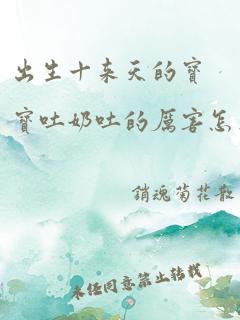 出生十来天的寶
寶吐奶吐的厲害怎
銷魂菊花散
未經同意禁止轉載